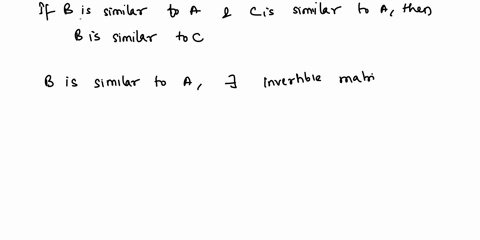 If B is similar to A & C is similar to A, then
B is similar to C
B is similar to A, ∃ invertible matri